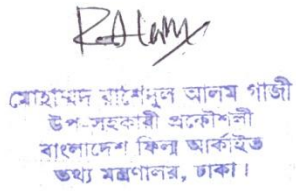 R. Alam
মোহাম্মদ রাশেদুল আলম গাজী
উপ-সহকারী প্রকৌশলী
বাংলাদেশ ফিল্ম আর্কাইভ
তথ্য মন্ত্রণালয়, ঢাকা।